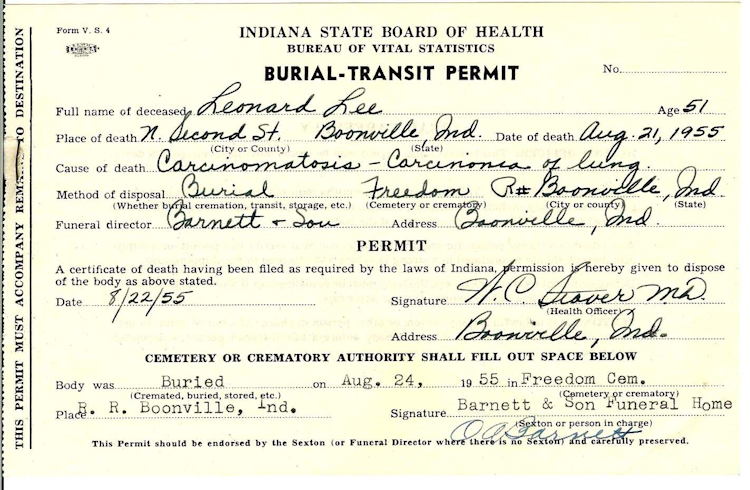 Form V. S. 4
INDIANA STATE BOARD OF HEALTH
BUREAU OF VITAL STATISTICS
BURIAL-TRANSIT PERMIT
No.
Full name of deceased Leonard Lee Age 51
Place of death N. Second St. Boonville, Ind. Date of death Aug. 21, 1955
(City or County) (State)
Cause of death Carcinomatosis - Carcinonia of lung.
Method of disposal Burial Freedom R# Boonville, Ind
(Whether burial cremation, transit, storage, etc.) (Cemetery or crematory) (City or county) (State)
Funeral director Barnett & Son Address Boonville, Ind.
PERMIT
A certificate of death having been filed as required by the laws of Indiana, permission is hereby given to dispose
of the body as above stated.
Date 8/22/55 Signature W. C. Stover MD.
(Health Officer)
Address Boonville, Ind.
CEMETERY OR CREMATORY AUTHORITY SHALL FILL OUT SPACE BELOW
Body was Buried on Aug. 24, 1955 in Freedom Cem.
(Cremated, buried, stored, etc.) (Cemetery or crematory)
Place R. R. Boonville, Ind. Signature Barnett & Son Funeral Home
(Sexton or person in charge)
O A Barnett
This Permit should be endorsed by the Sexton (or Funeral Director where there is no Sexton) and carefully preserved.
THIS PERMIT MUST ACCOMPANY REMAINS TO DESTINATION